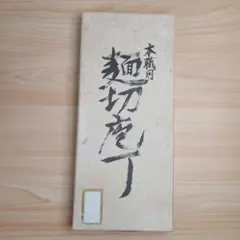 本職用
麺切庖丁